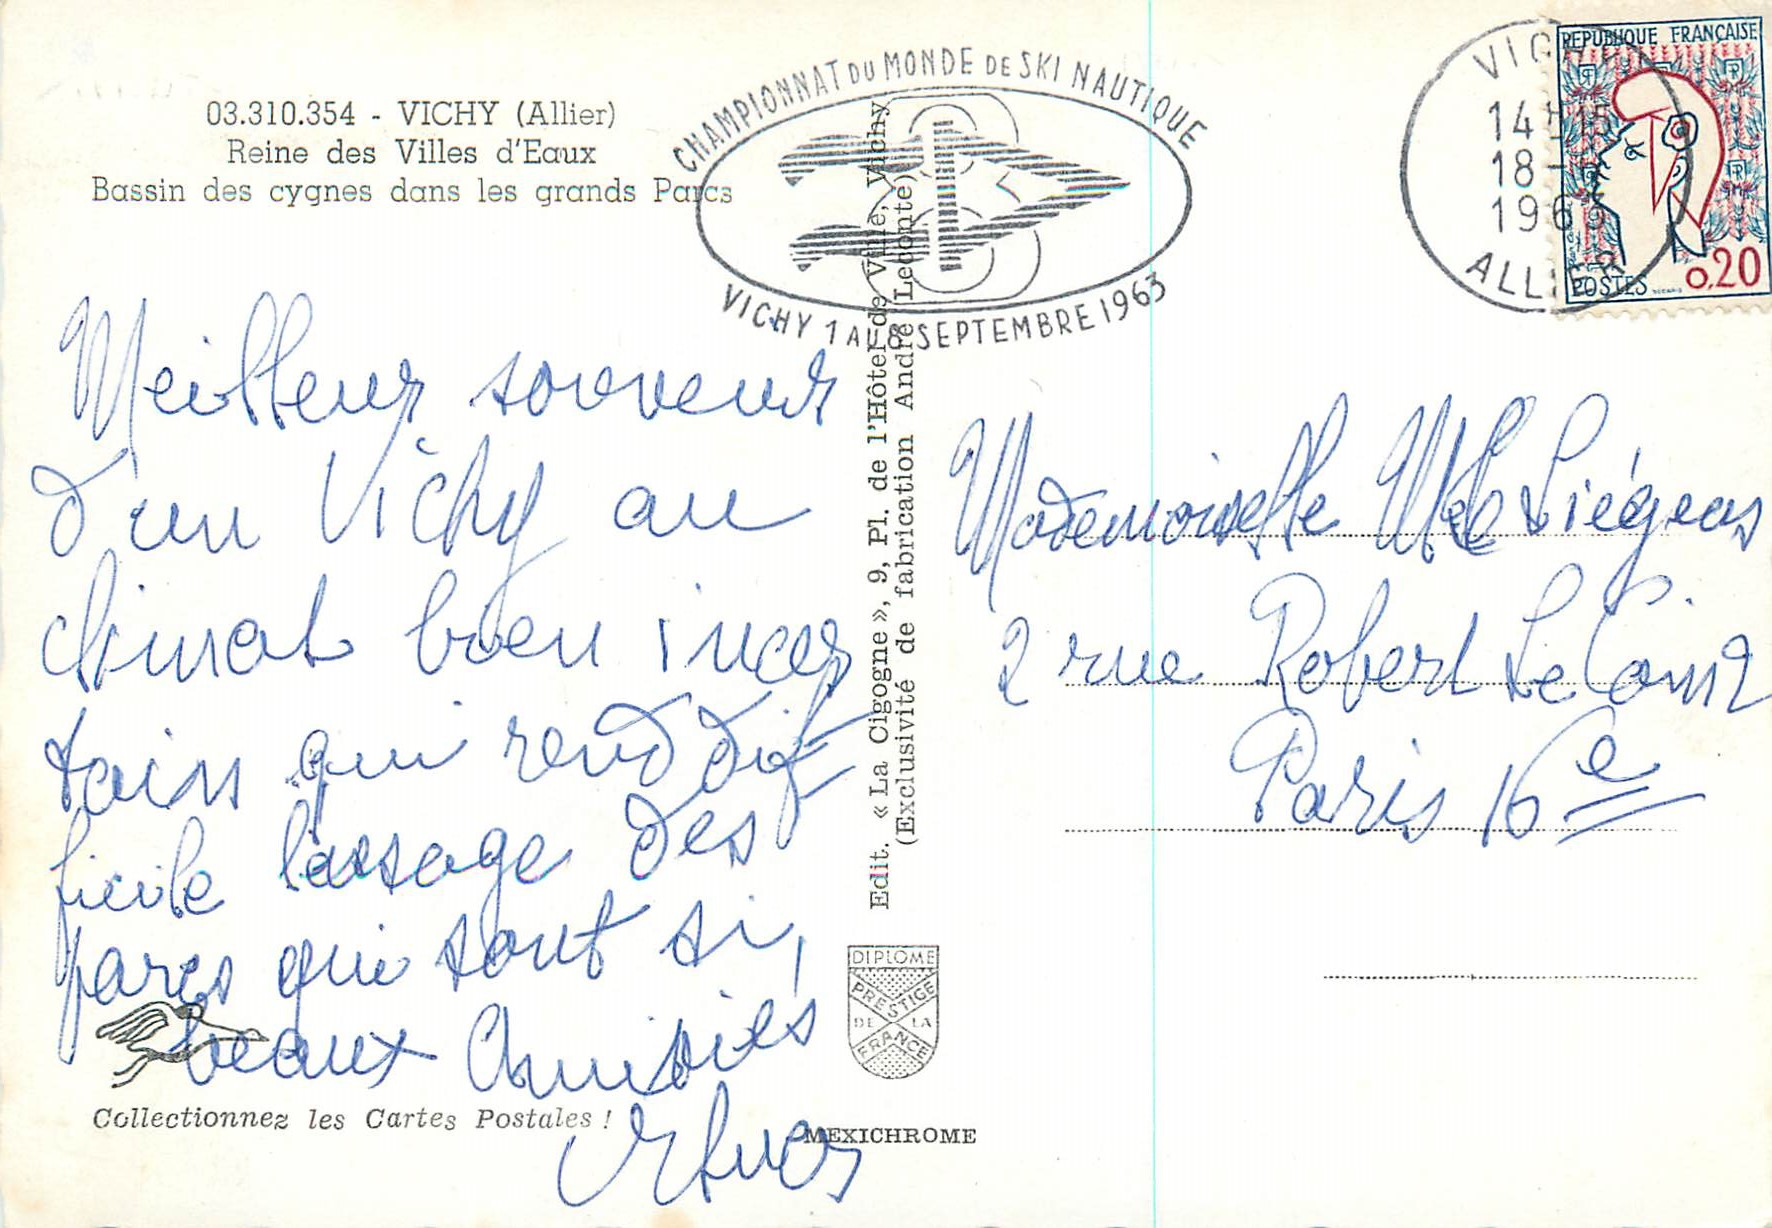 03.310.354 - VICHY (Allier)
Reine des Villes d'Eaux
Bassin des cygnes dans les grands Parcs
CHAMPIONNAT DU MONDE DE SKI NAUTIQUE
VICHY 1 AU 8 SEPTEMBRE 1963
VICHY
14H15
18-
1963
ALLIER
REPUBLIQUE FRANÇAISE
POSTES
0,20
Meilleur souvenir
d'un Vichy au
climat bien incer
tain qui rend dif
ficile passage des
parcs qui sont si,
beaux Amitiés
Edit. « La Cigogne », 9, Pl. de l'Hôtel de Ville, Vichy
(Exclusivité de fabrication André Leconte)
Mademoiselle Liégeois
2 rue Robert Le Coin
Paris 16e
DIPLOME
PRESTIGE
DE LA
FRANCE
Collectionnez les Cartes Postales !
MEXICHROME